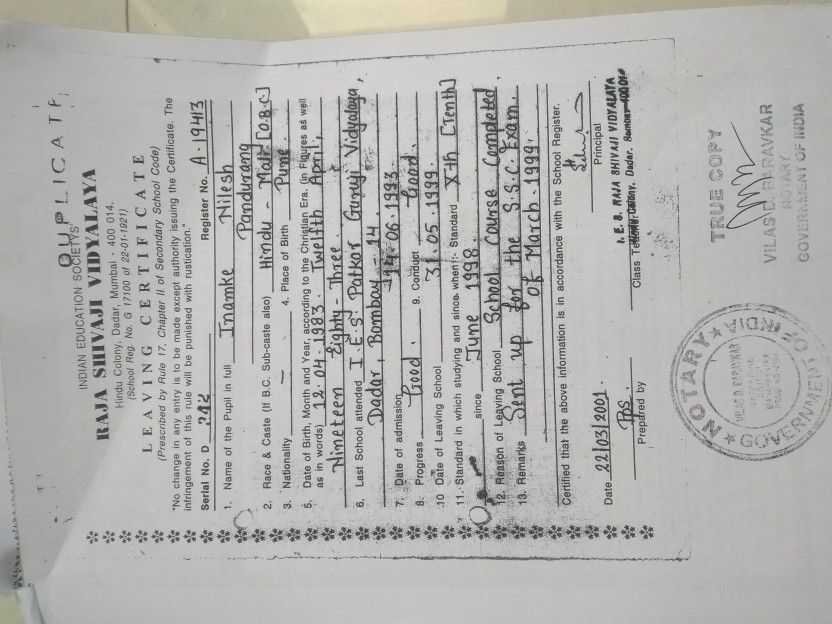 DUPLICATE
INDIAN EDUCATION SOCIETYS'
RAJA SHIVAJI VIDYALAYA
Hindu Colony, Dadar, Mumbai - 400 014.
(School Reg. No. G 17100 of 22-01-1921)
LEAVING CERTIFICATE
(Prescribed by Rule 17, Chapter II of Secondary School Code)
"No change in any entry is to be made except authority issuing the Certificate. The
infringement of this rule will be punished with rustication."
Serial No. D 212 Register No. A-19413
1. Name of the Pupil in full Inamke Nilesh
Pandurang
2. Race & Caste (If B.C. Sub-caste also) Hindu - Mali [O.B.C]
3. Nationality — 4. Place of Birth Pune.
5. Date of Birth, Month and Year, according to the Christian Era. (in Figures as well
as in words) 12.04.1983. Twelfth April,
Nineteen Eighty-Three.
6. Last School attended I.E.S. Patkar Guruji Vidyalaya,
Dadar, Bombay-14
7. Date of admission 14.06.1993.
8. Progress Good. 9. Conduct Good.
10 Date of Leaving School 31.05.1999.
11. Standard in which studying and since when :- Standard X-th [Tenth]
since June 1998.
12. Reason of Leaving School School Course Completed.
13. Remarks Sent up for the S.S.C. Exam.
of March.1999.
Certified that the above information is in accordance with the School Register.
Date 22/03/2001
Prepared by Class Teacher Principal
I. E. S. RAJA SHIVAJI VIDYALAYA
Hindu Colony, Dadar, Bombay-400 014
TRUE COPY
VILAS D. PARAVKAR
NOTARY
GOVERNMENT OF INDIA
NOTARY
GOVERNMENT OF INDIA
VILAS D. PARAVKAR